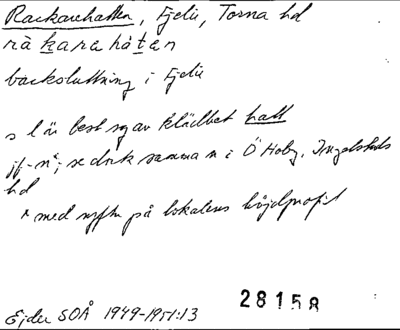 Rackarehatten, Fjelie, Torna hd
ràkarehàtėn
backsluttning i Fjelie
s l är best sg av klädbet hatt
jf-n*; se dock samma n i Ö Hoby, Ingelstads
hd
* med syftn på lokalens höjdprofil
Ejder SOÅ 1949-1951:13
28158